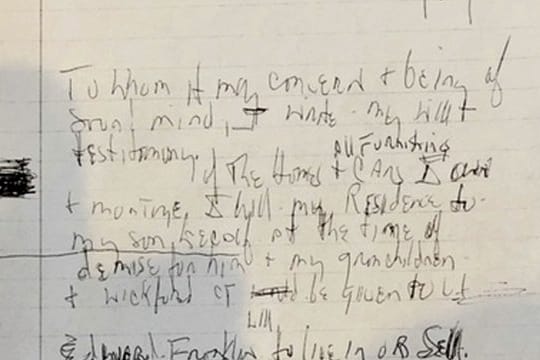 To Whom It may concern & being of
sound mind, I write my Will &
testimony.
All Furnishing
Of The Homes & CARS I own
& I Will my Residence to
my son, Kecalf at the time of
demise for him & my granchildren
& Wickford CT be given to
Will
Edward Franklin to live in OR Sell